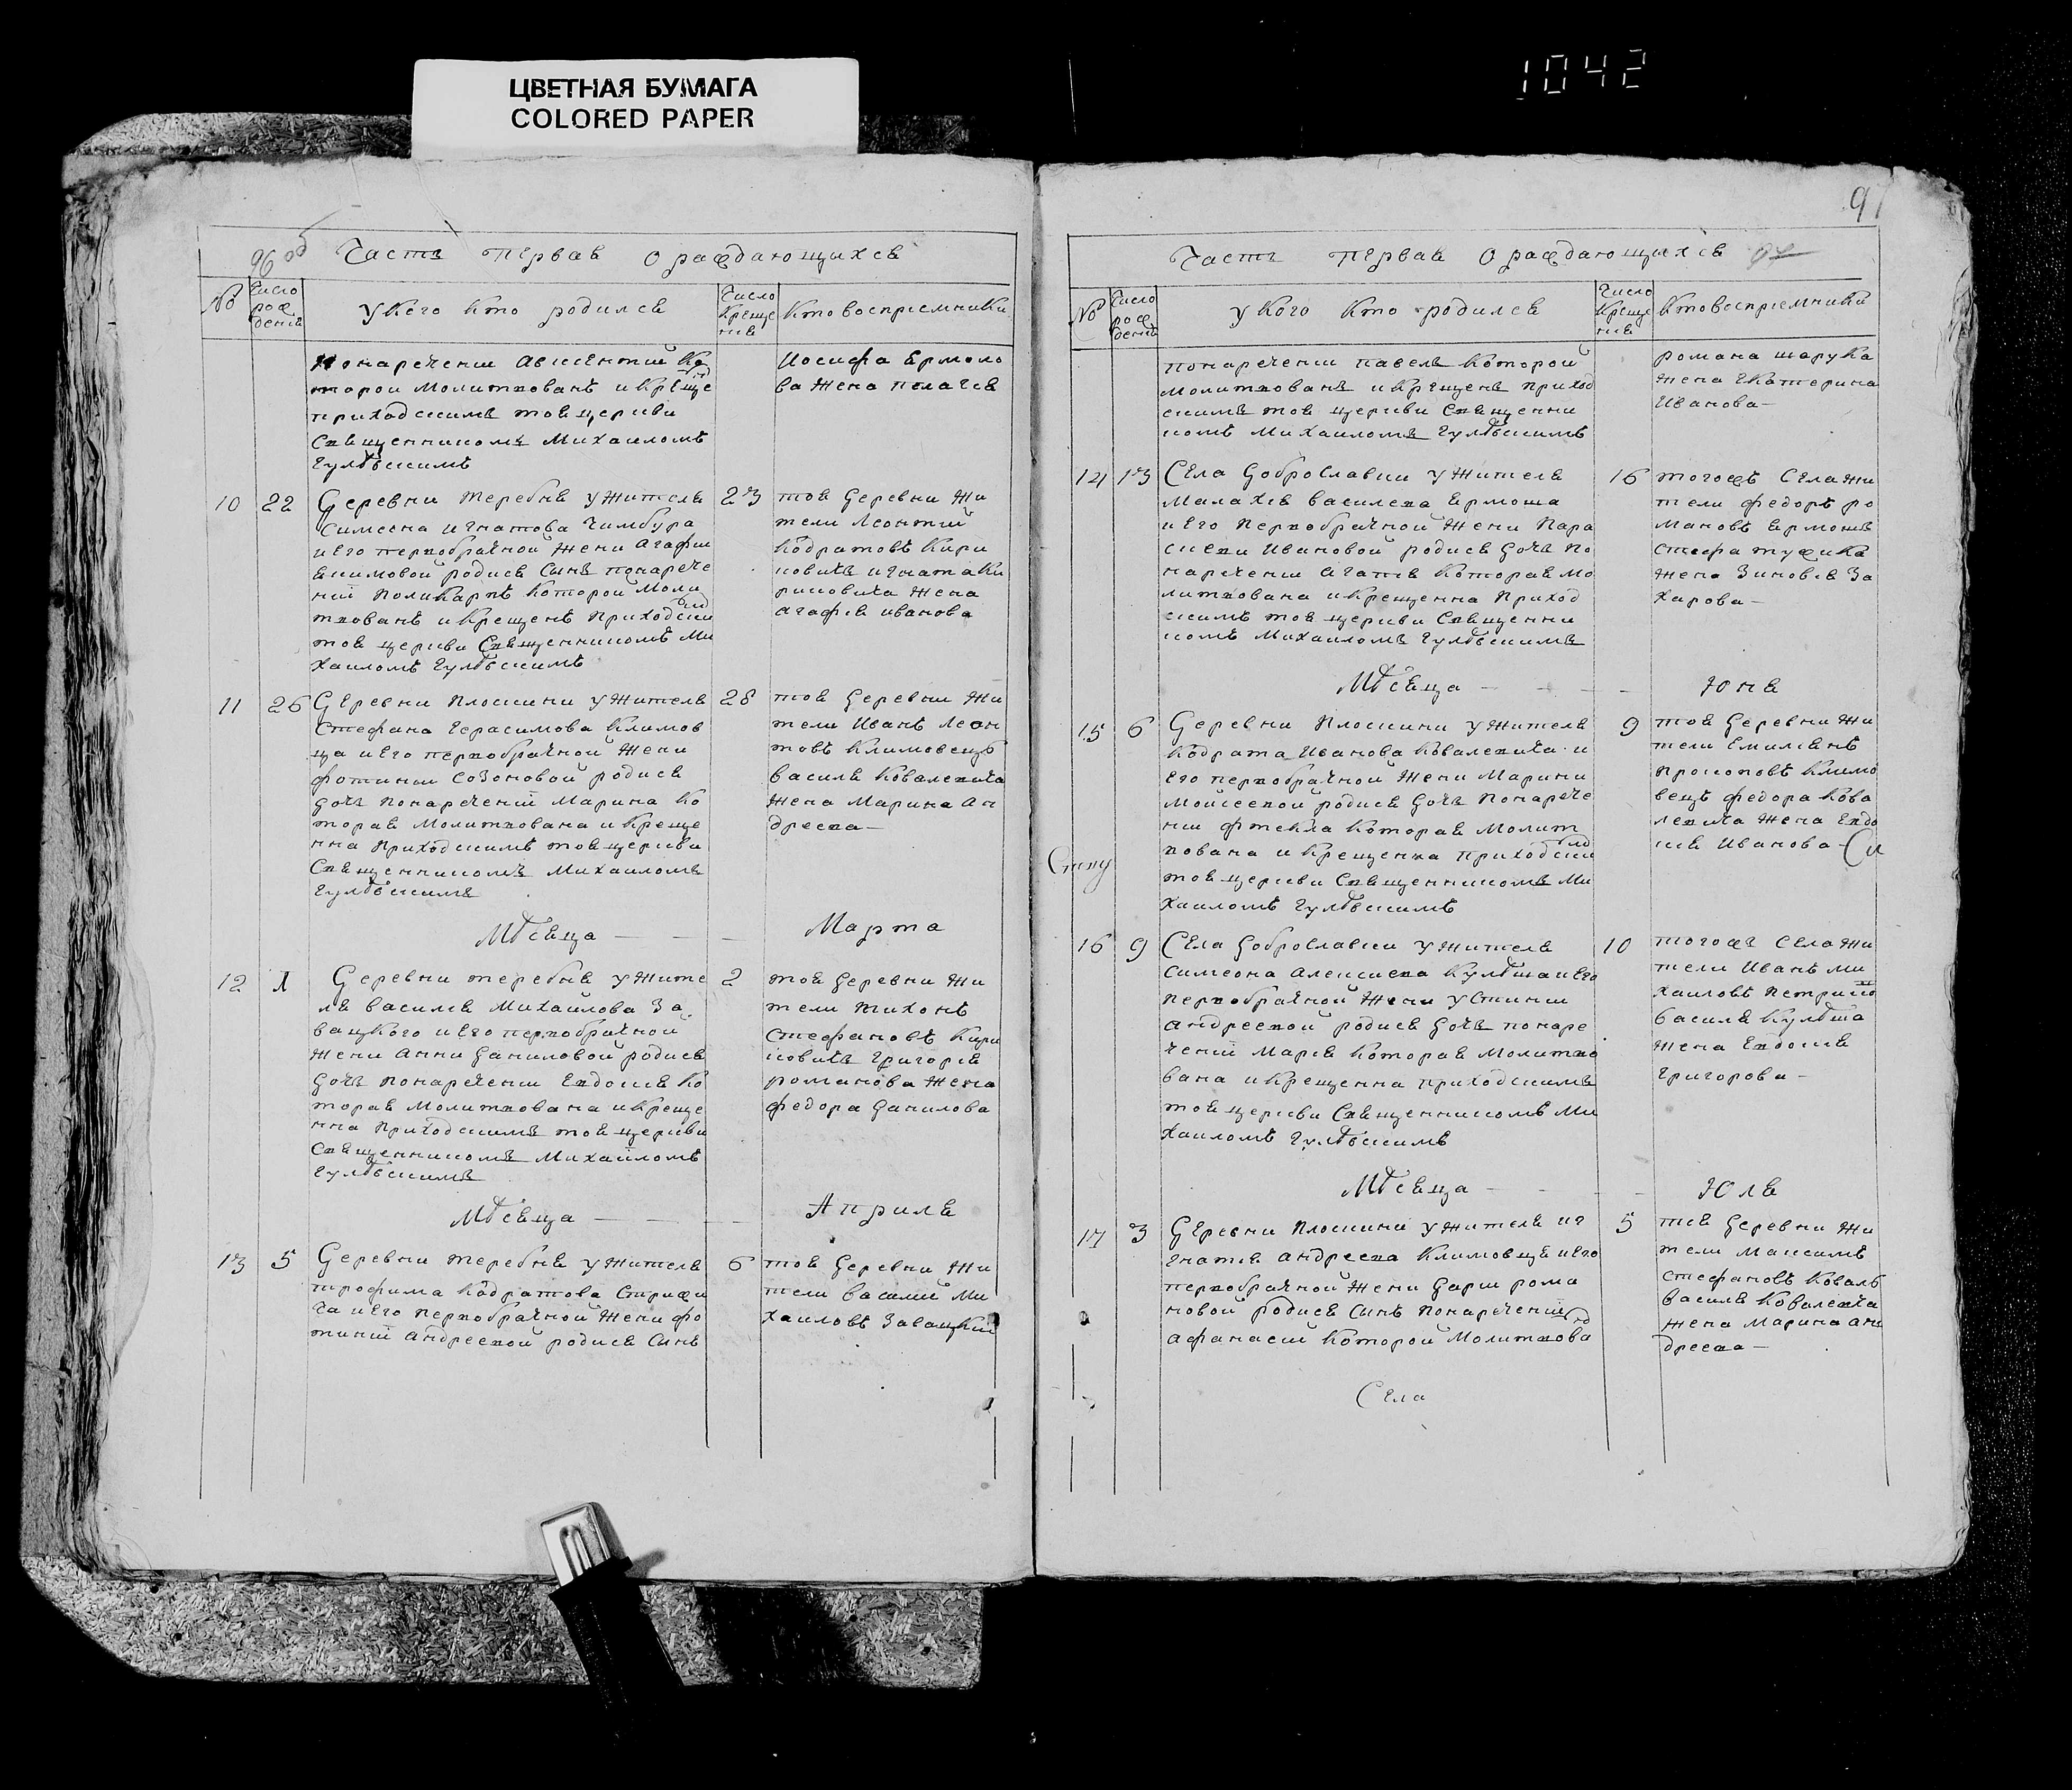 ЦВЕТНАЯ БУМАГА
COLORED PAPER
1042
96 об Часть первая о раждающихся
№
Число рож дения
у кого кто родился
Число креще ния
кто восприемники
понаречении Авксентий ко
торой молитвованъ и крещенъ
приходскимъ тоя церкви
священникомъ Михаиломъ
Гулѣвскимъ
Иосифа Ермоло
ва жена Пелагея
10 22 Деревни Теребня у жителя
Симеона Игнатова Чимбура
и его первобрачной жени Агафии
Екимовой родися сынъ понарече
нии Поликарпъ которой моли
твованъ и крещенъ приходским
тоя церкви священникомъ Ми
хаиломъ Гулѣвскимъ
23 тоя деревни жи
тели Леонтий
Кодратовъ Кири
ковичъ Игната Ки
риковича жена
Агафия Иванова
11 26 Деревни Плоскини у жителя
Стефана Герасимова Климов
ца и его первобрачной жени
Фотинии Созоновой родися
дочь понаречении Марина ко
торая молитвована и креще
нна приходскимъ тоя церкви
священникомъ Михаиломъ
Гулѣвскимъ
28 тоя деревни жи
тели Иванъ Леон
товъ Климовецъ
Василя Ковалевича
жена Марина Ан
дреева
Мѣсяца Марта
12 1 Деревни Теребня у жите
ля Василя Михаилова За
вацкого и его первобрачной
жени Анни Даниловой родися
дочь понаречении Евдокия ко
торая молитвована и креще
нна приходскимъ тоя церкви
священникомъ Михаиломъ
Гулѣвскимъ
2 тоя деревни жи
тели Тихонъ
Стефановъ Кири
ковичъ Григорея
Романова жена
Федора Данилова
Мѣсяца Априля
13 5 Деревни Теребня у жителя
Трофима Кодратова Стрижи
ча и его первобрачной жени Фо
тинии Андреевой родися сынъ
6 тоя деревни жи
тели Василий Ми
хаиловъ Завацкий
97
Часть первая о раждающихся
№
Число рож дения
у кого кто родился
Число креще ния
кто восприемники
понаречении Павелъ которой
молитвованъ и крещенъ приход
скимъ тоя церкви священни
комъ Михаиломъ Гулѣвскимъ
Романа Шарука
жена Екатерина
Иванова
14 13 Села Доброславки у жителя
Малахея Василева Ермоша
и его первобрачной жени Пара
скеви Ивановой родися дочь по
наречении Агапея которая мо
литвована и крещенна приход
скимъ тоя церкви священни
комъ Михаиломъ Гулѣвскимъ
16 тогожъ села жи
тели Федоръ Ро
мановъ Ермошъ
жена Зиновея За
харова
Мѣсяца Юня
15 6 Деревни Плоскини у жителя
Кодрата Иванова Ковалевича и
его первобрачной жени Марини
Мойсеевой родися дочь понарече
нии Фтекла которая молит
вована и крещенна приходским
тоя церкви священникомъ Ми
хаиломъ Гулѣвскимъ
9 тоя деревни жи
тели Емилиянъ
Прокоповъ Климо
вецъ Федора Кова
левича жена Евдо
кия Иванова
16 9 Села Доброславки у жителя
Симеона Алексиева Кулѣша и его
первобрачной жени Устинии
Андреевой родися дочь понаре
чении Марея которая молитво
вана и крещенна приходскимъ
тоя церкви священникомъ Ми
хаиломъ Гулѣвскимъ
10 тогожъ села жи
тели Иванъ Ми
хаиловъ
Василя Кулѣша
жена Евдокия
Григорова
Мѣсяца Юля
17 3 Деревни Плоскини у жителя Иг
натея Андреева Климовця и его
первобрачной жени Дарии Рома
новой родися сынъ понаречении
Афанасий которой молитвова
5 тоя деревни жи
тели Максимъ
Стефановъ Коваль
Василя Ковалевича
жена Марина Ан
дреева
Села